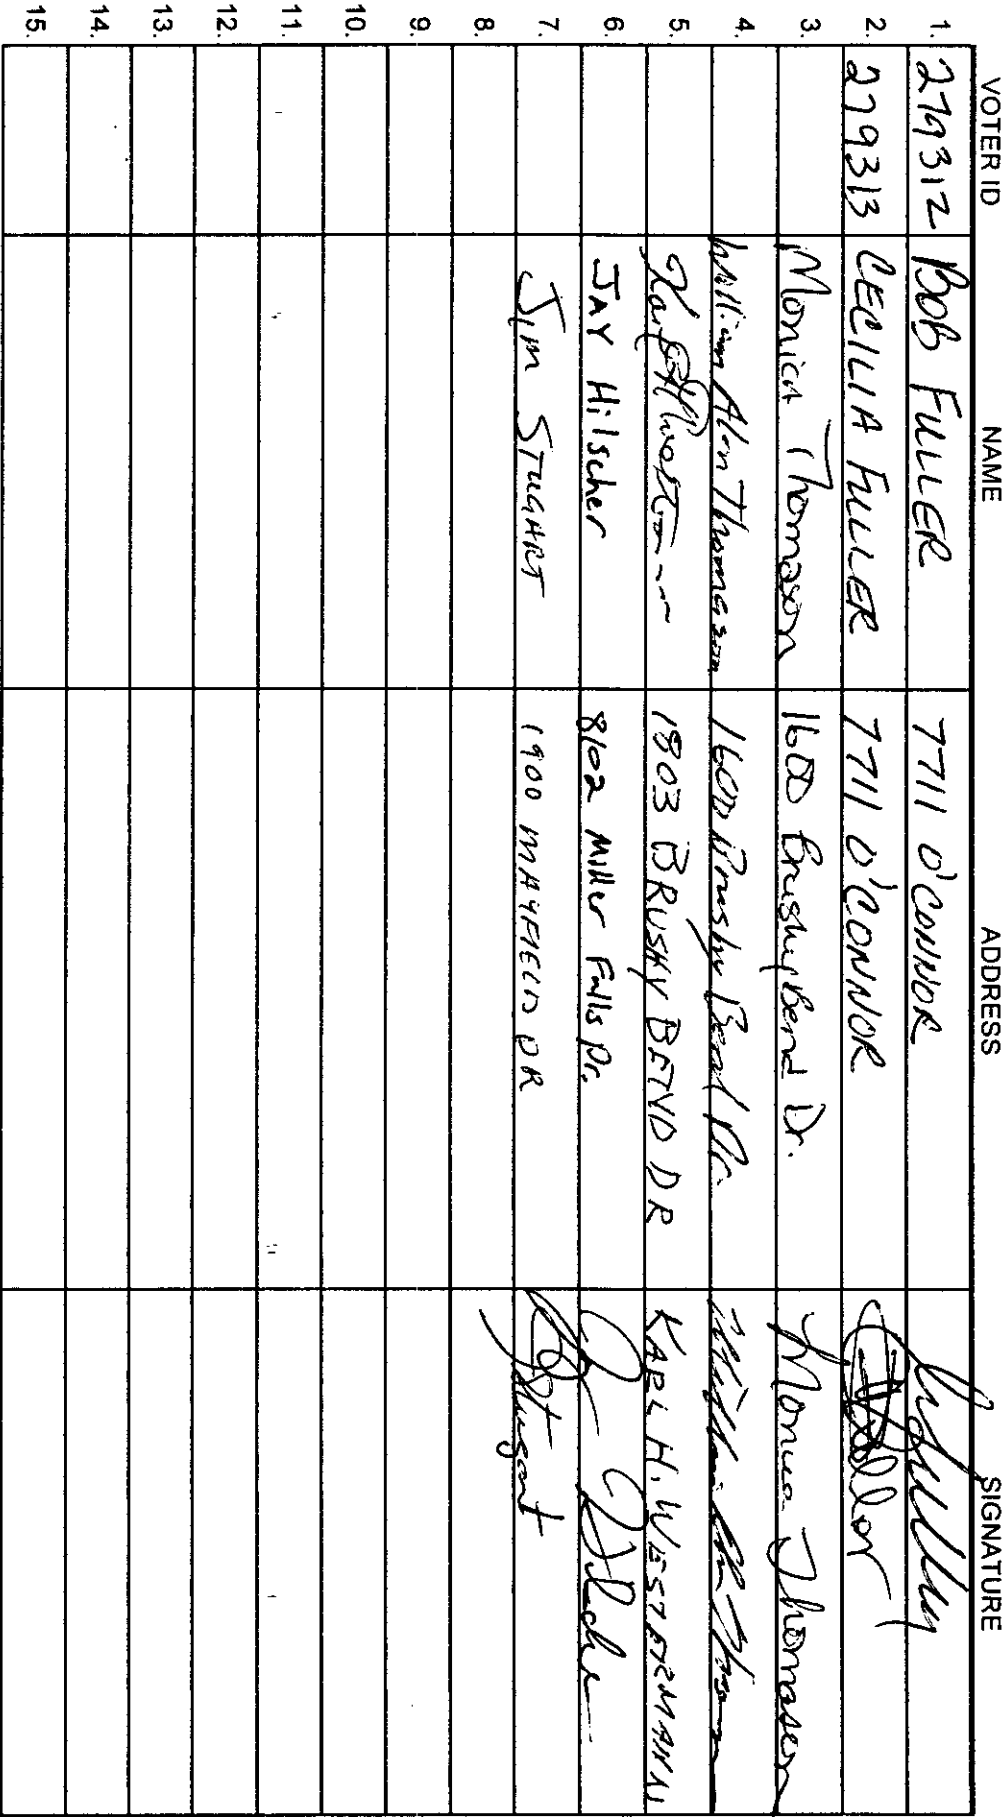 VOTER ID NAME ADDRESS SIGNATURE
1. 279312 BOB FULLER 7711 O'CONNOR
2. 279313 CECILIA FULLER 7711 O'CONNOR
3. Monica Thomason 1600 Brushy Bend Dr. Monica Thomason
4. William Alan Thomason 1600 Brushy Bend Dr.
5. 1803 BRUSHY BEND DR KARL H. WESTERMANN
6. JAY Hilscher 8102 Miller Falls Dr.
7. Jim STUGART 1900 MAYFIELD DR Stugart
8.
9.
10.
11.
12.
13.
14.
15.